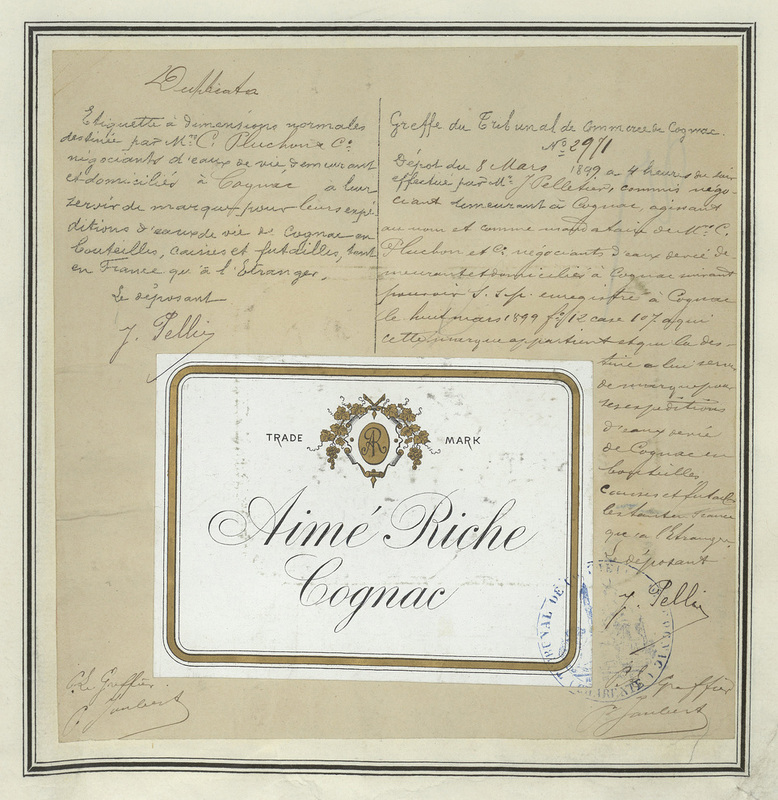 Duplicata
Etiquette à dimensions normales
destinée par Mrs C. Pluchon & Cie
négociants d'eaux de vie, demeurant
et domiciliés à Cognac à leur
servir de marque pour leurs expé-
ditions d'eaux de vie de Cognac en
bouteilles, caisses et futailles, tant
en France qu'à l'Etranger.
Le déposant
J. Pelli
Greffe du Tribunal de Commerce de Cognac.
No 2971
Dépôt du 8 Mars 1899 à 4 heures du soir
effectué par Mr J. Pelletier, commis négo-
ciant demeurant à Cognac, agissant
au nom et comme mandataire de Mrs C.
Pluchon et Cie négociants d'eaux de vie de-
meurant et domiciliés à Cognac suivant
pouvoir s.s.p. enregistré à Cognac
le huit mars 1899 fo 12 case 107 à qui
cette marque appartient et qui la des-
tine à lui servir
de marque pour
ses expéditions
d'eaux de vie
de Cognac en
bouteilles
caisses et futail-
les tant en France
qu'à l'Etranger.
Le déposant
J. Pelli
TRADE MARK
AR
Aimé Riche
Cognac
TRIBUNAL DE
CHARENTE
Le Greffier
C. Jaubert
Le Greffier
C. Jaubert